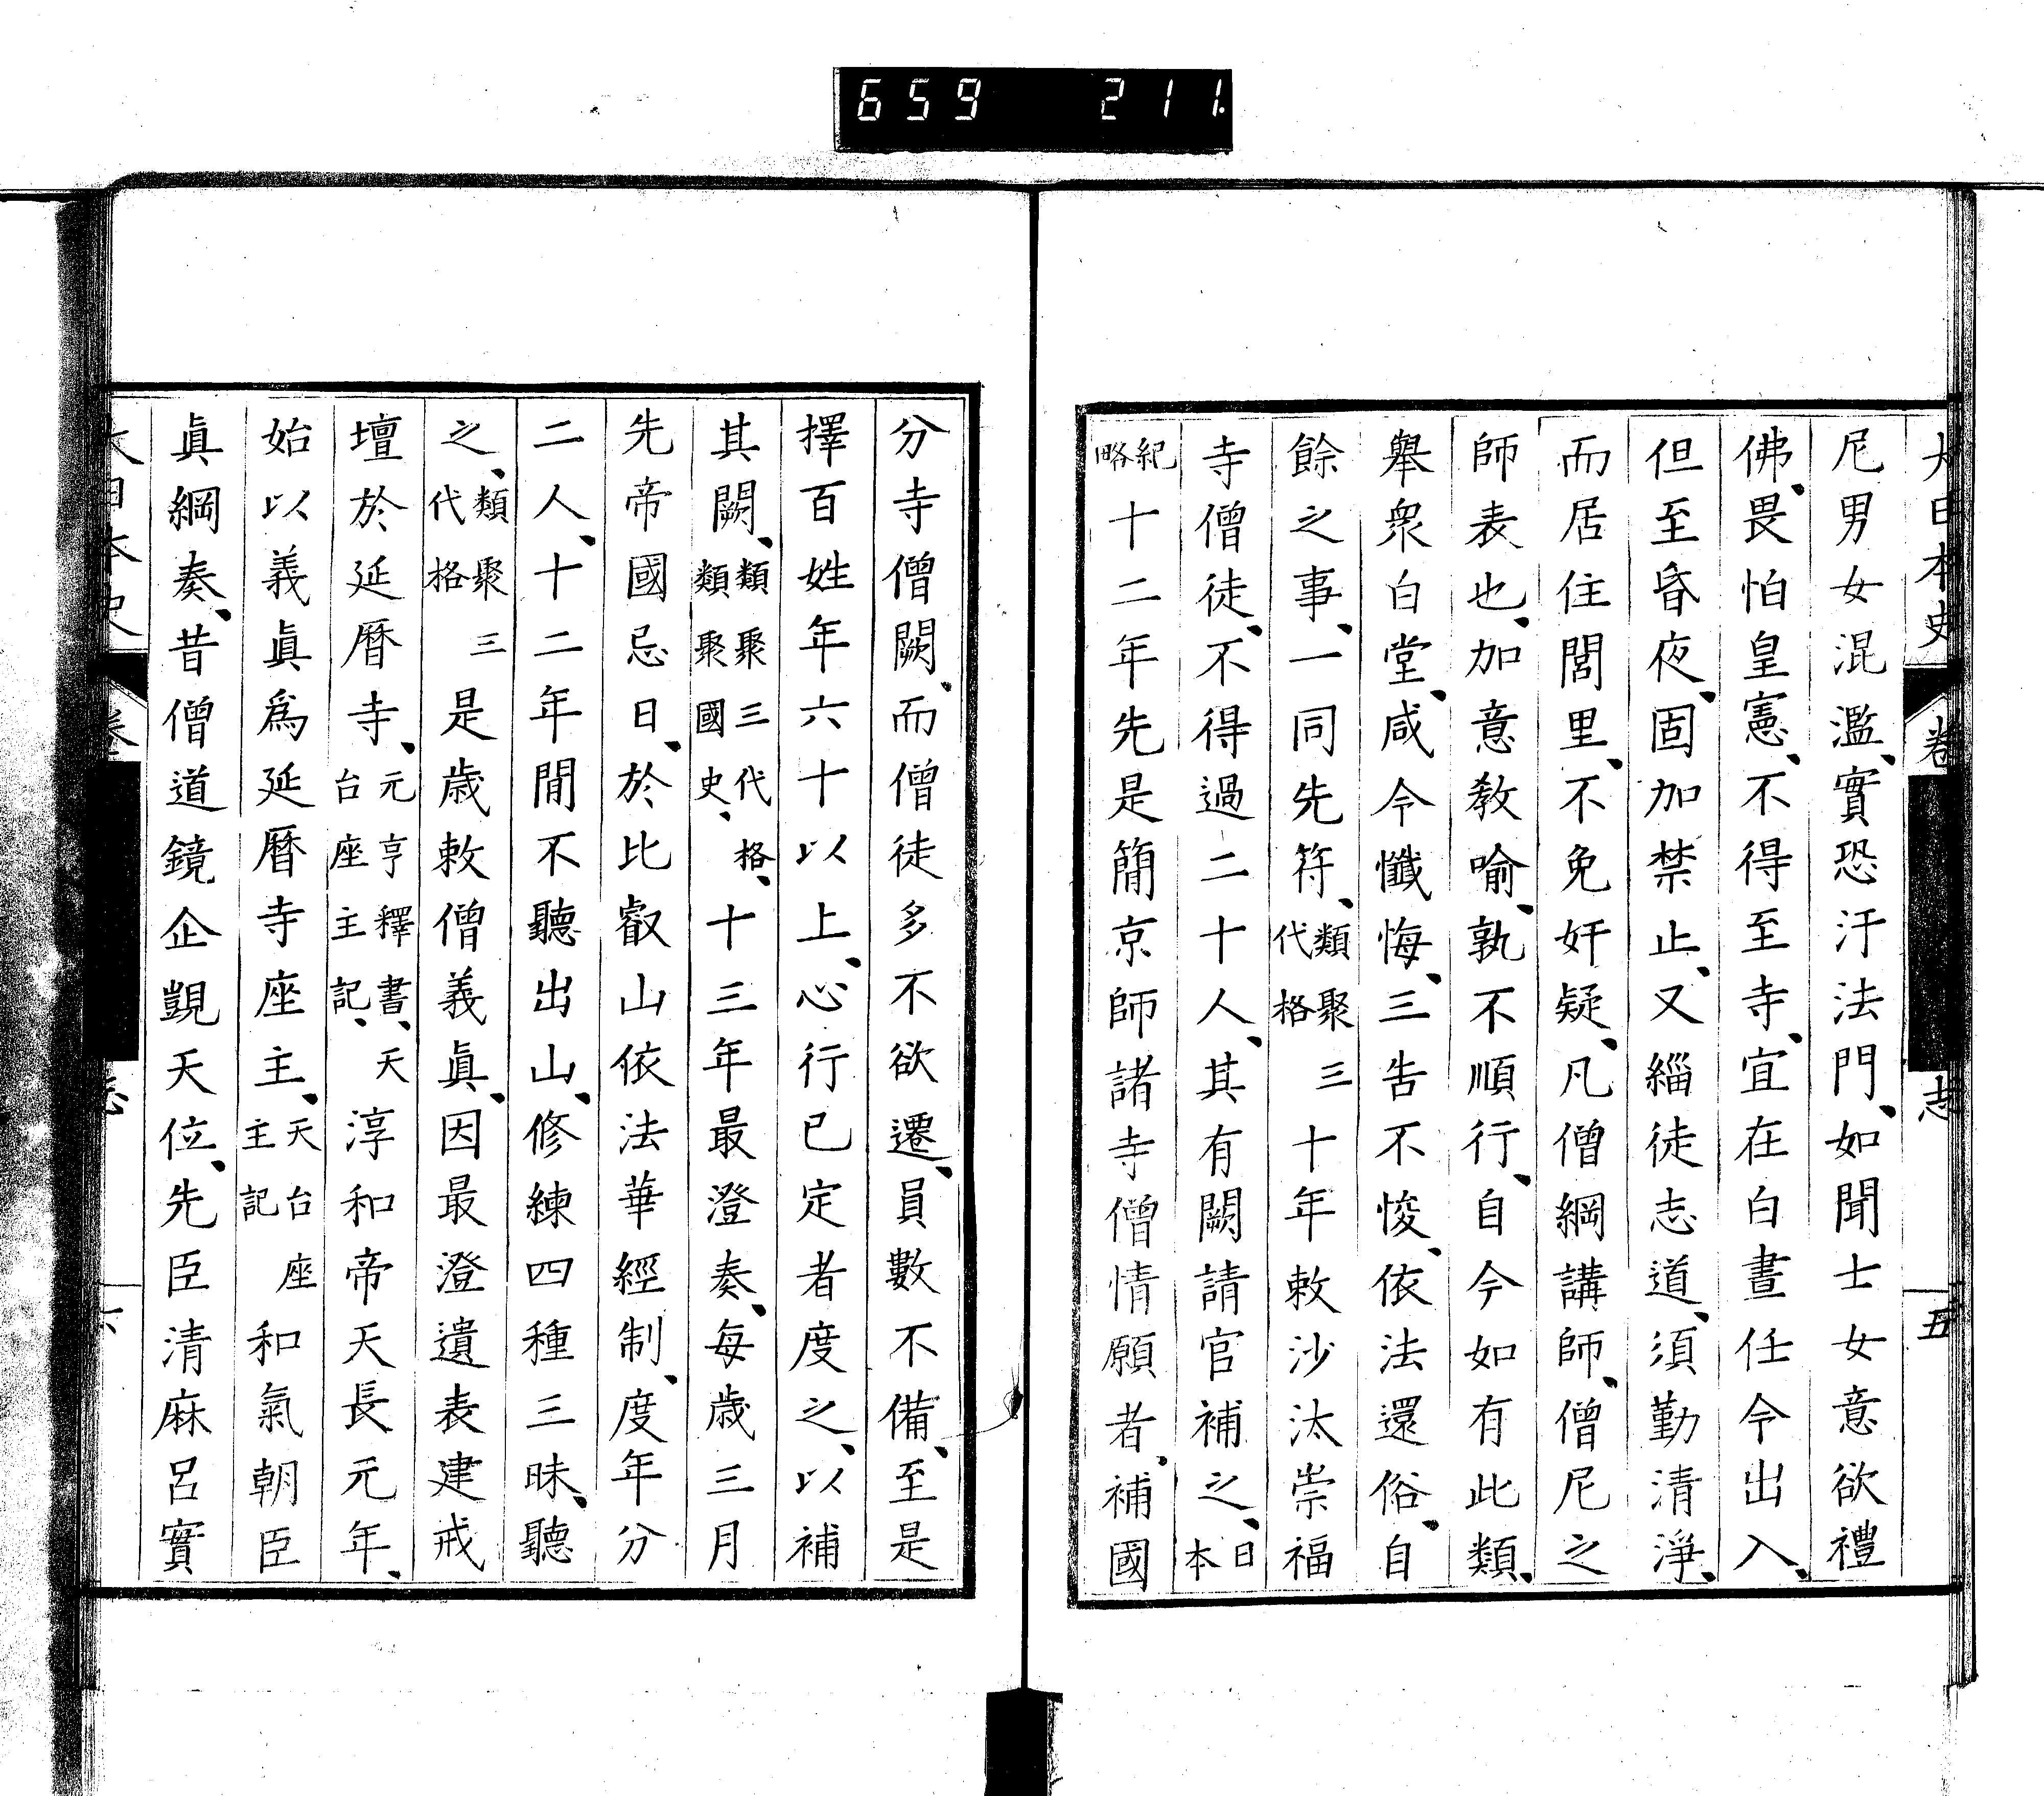 659 211.
大日本史 卷 志 五
尼男女混濫、實恐汙法門、如聞士女意欲禮
佛、畏怕皇憲、不得至寺、宜在白晝任令出入、
但至昏夜、固加禁止、又緇徒志道、須勤清淨、
而居住閭里、不免奸疑、凡僧綱講師、僧尼之
師表也、加意教喻、孰不順行、自今如有此類、
舉衆白堂、咸令懺悔、三告不悛、依法還俗、自
餘之事、一同先符、類聚三代格 十年敕沙汰崇福
寺僧徒、不得過二十人、其有闕請官補之、日本
紀略 十二年先是簡京師諸寺僧情願者、補國
分寺僧闕、而僧徒多不欲遷、員數不備、至是
擇百姓年六十以上、心行已定者度之、以補
其闕、類聚三代格、類聚國史、十三年最澄奏、每歳三月
先帝國忌日、於比叡山依法華經制、度年分
二人、十二年閒不聽出山、修練四種三昧、聽
之、類聚三代格 是歳敕僧義眞、因最澄遺表建戒
壇於延曆寺、元亨釋書、天台座主記、淳和帝天長元年、
始以義眞爲延曆寺座主、天台座主記 和氣朝臣
眞綱奏、昔僧道鏡企覬天位、先臣清麻呂實
大日本史 卷 志 六